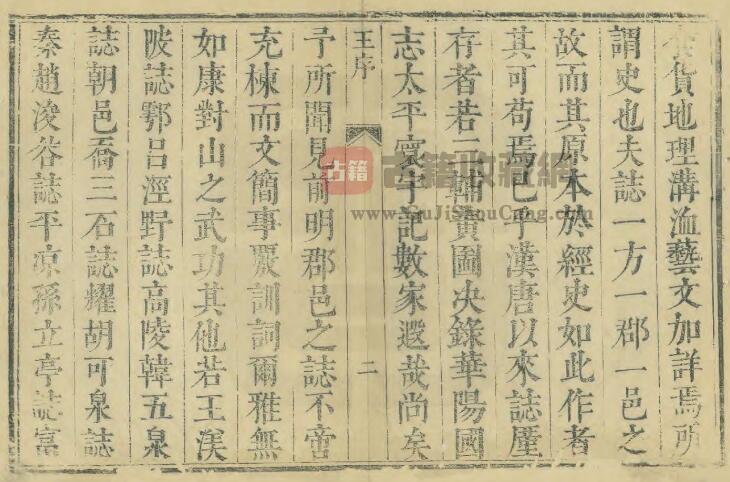 食貨地理溝洫藝文加詳焉所
謂史也夫誌一方一郡一邑之
故而其原本於經史如此作者
其可苟焉已乎漢唐以來誌厪
存者若三輔黃圖决錄華陽國
志太平寰宇記數家遐哉尚矣
王序
二
予所聞見前明郡邑之誌不啻
充棟而文簡事覈訓詞爾雅無
如康對山之武功其他若王渼
陂誌鄠呂涇野誌高陵韓五泉
誌朝邑喬三石誌耀胡可泉誌
秦趙浚谷誌平凉孫立亭誌富
古籍
古籍收藏網
www.GuJiShouCang.com